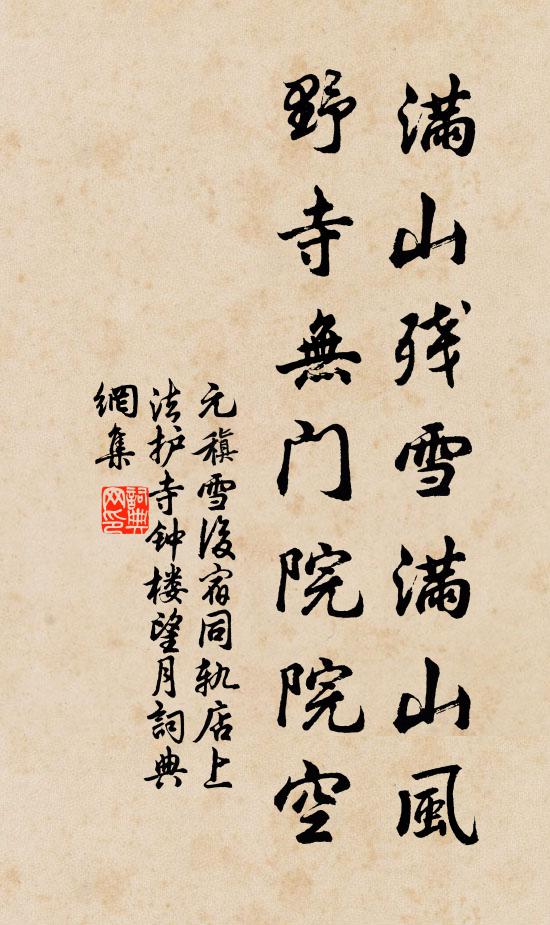 满山残雪满山風
野寺無门院院空
元稹雪後宿同轨店上
法护寺钟楼望月詞典
網集
詞典网印